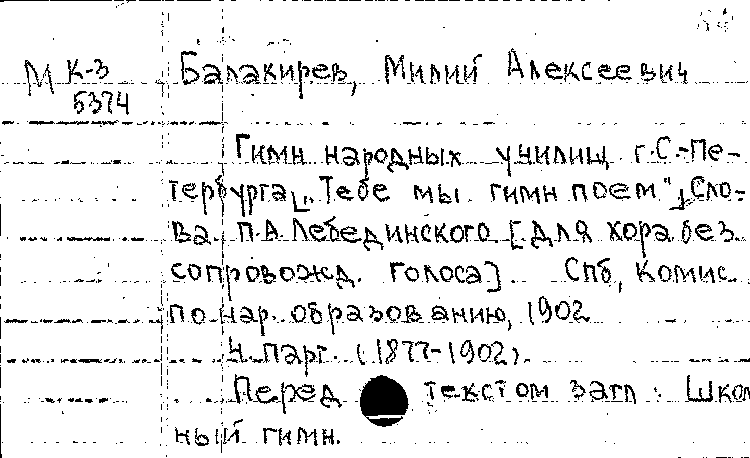 М К-3 Балакирев, Милий Алексеевич
5374
Гимн народных училищ г. С.-Пе-
тербурга [„Тебе мы гимн поем"] Сло-
ва П.А. Лебединского [для хора без
сопровожд. голоса]. Спб, Комис.
по нар. образованию, 1902
4. парт. (1877-1902).
Перед текстом загл.: Школ
ный гимн.